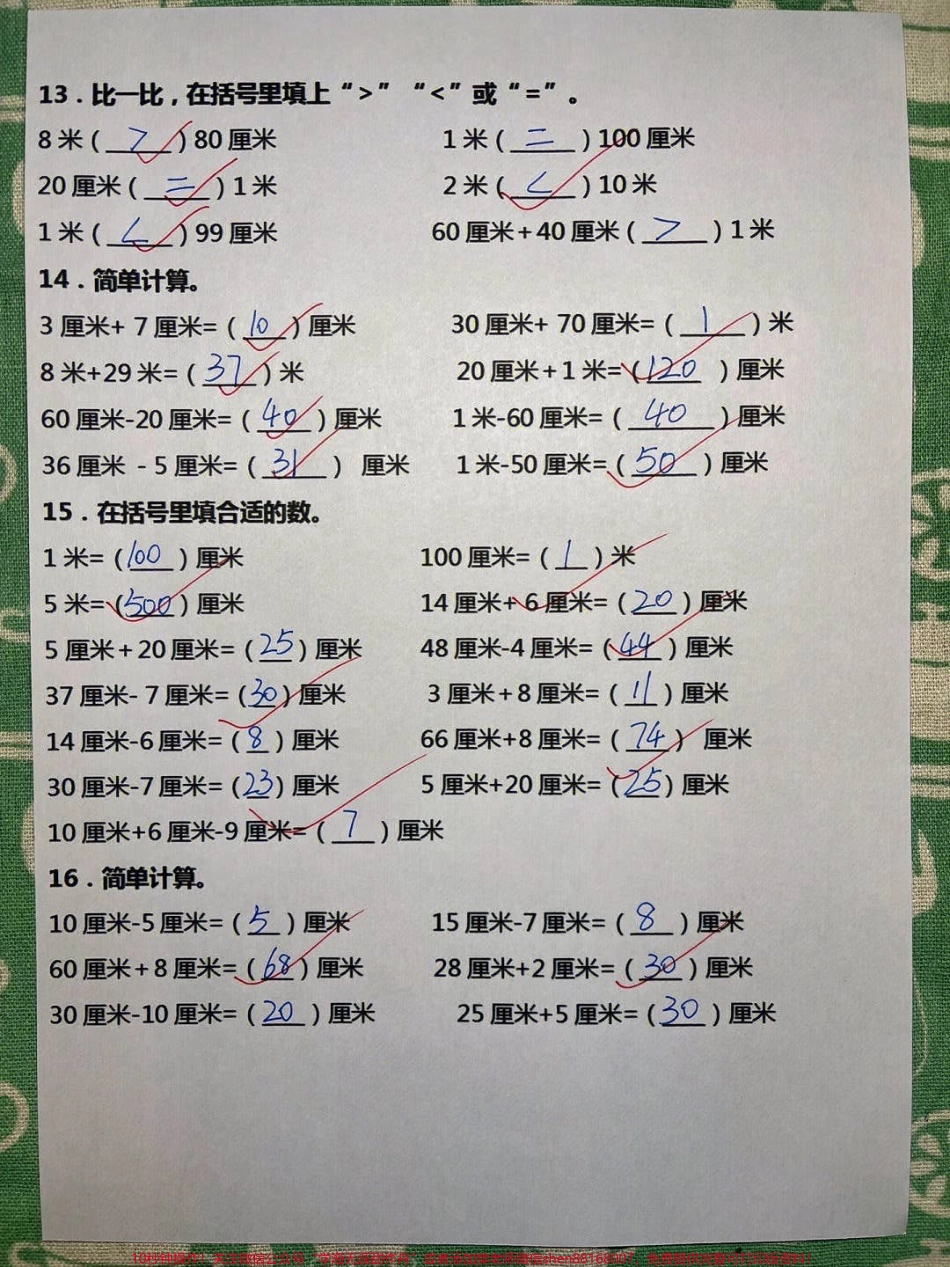 13．比一比，在括号里填上“>”“<”或“=”。
8米（ > ）80厘米 1米（ = ）100厘米
20厘米（ = ）1米 2米（ < ）10米
1米（ < ）99厘米 60厘米+40厘米（ > ）1米
14．简单计算。
3厘米+ 7厘米=（ 10 ）厘米 30厘米+ 70厘米=（ 1 ）米
8米+29米=（ 37 ）米 20厘米+1米=（ 120 ）厘米
60厘米-20厘米=（ 40 ）厘米 1米-60厘米=（ 40 ）厘米
36厘米 - 5厘米=（ 31 ）厘米 1米-50厘米=（ 50 ）厘米
15．在括号里填合适的数。
1米=（ 100 ）厘米 100厘米=（ 1 ）米
5米=（ 500 ）厘米 14厘米+6厘米=（ 20 ）厘米
5厘米+20厘米=（ 25 ）厘米 48厘米-4厘米=（ 44 ）厘米
37厘米- 7厘米=（ 30 ）厘米 3厘米+8厘米=（ 11 ）厘米
14厘米-6厘米=（ 8 ）厘米 66厘米+8厘米=（ 74 ）厘米
30厘米-7厘米=（ 23 ）厘米 5厘米+20厘米=（ 25 ）厘米
10厘米+6厘米-9厘米=（ 7 ）厘米
16．简单计算。
10厘米-5厘米=（ 5 ）厘米 15厘米-7厘米=（ 8 ）厘米
60厘米+8厘米=（ 68 ）厘米 28厘米+2厘米=（ 30 ）厘米
30厘米-10厘米=（ 20 ）厘米 25厘米+5厘米=（ 30 ）厘米